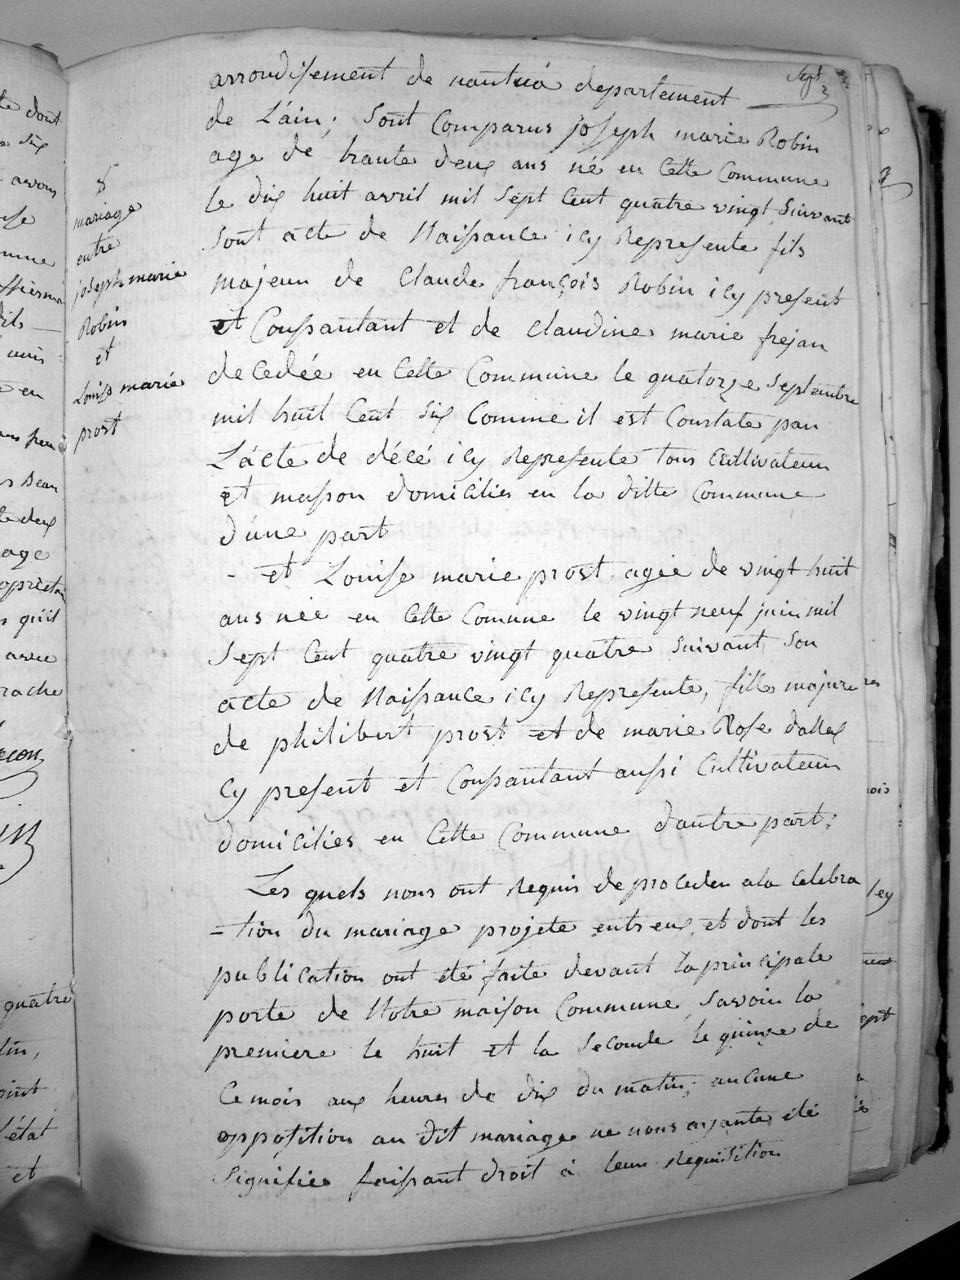 Sept
arrondisement de nantua departement
de L'ain; sont Comparus joseph marie Robin
age de trante deux ans né en Cette Commune
le dix huit avril mil sept Cent quatre vingt suivant
sont acte de Naissance icy Represente fils
majeur de Claude françois Robin icy present
et Consantant et de Claudine marie frejan
decedée en Cette Commune le quatorze Septembre
mil huit Cent six Comme il est Constate par
L'acte de décé icy Represente tous Cultivateur
et masson domicilies en la ditte Commune
d'une part
- et Louise marie prost agée de vingt huit
ans née en Cette Comune le vingt neuf juin mil
Sept Cent quatre vingt quatre suivant son
acte de Naissance icy Represente, fille majure
de philibert prost et de marie Rose dallex
Cy present et Consantant aussi Cultivateur
domicilies en Cette Commune d'autre part;
Les quels nous ont Requis de proceder a la Celebra
-tion du mariage projete entr eux, et dont les
publication ont été faite devant la principale
porte de Notre maison Commune, savoir la
premiere le huit et la Seconde le quinze de
Ce mois aux heures de dix du matin; aucune
opposition au dit mariage ne nous ayante été
signifiée faissant droit à leur Requisition
8
mariage
entre
joseph marie
Robin
et
Louise marie
prost
te dont
avons
en
Beau
te deux
age
qu'il
avec
quatre
l'état
et